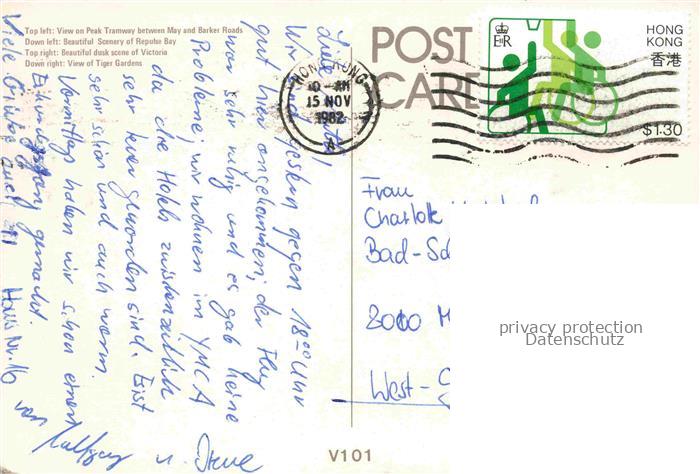 Top left: View on Peak Tramway between May and Barker Roads
Down left: Beautiful Scenery of Repulse Bay
Top right: Beautiful dusk scene of Victoria
Down right: View of Tiger Gardens
POST
CARD
HONG KONG
10 - AM
15 NOV
1982
A
E R
HONG
KONG
香港
$1.30
Liebe
Wir sind gestern gegen 18⁰⁰ Uhr
gut hier angekommen, der Flug
war sehr ruhig und es gab keine
Probleme, wir wohnen im YMCA
da die Hotels zwischenzeitlich
sehr teuer geworden sind. Es ist
sehr schön und auch warm.
Vormittag haben wir schon einen
gemacht.
Viele Grüße auch an Haus Nr. 16
von Wolfgang u.
Frau
Charlotte
Bad-Sc
8000 M
West-G
privacy protection
Datenschutz
V101